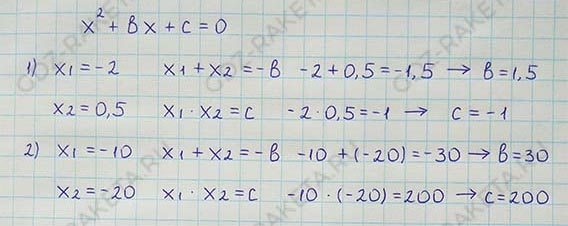 x² + bx + c = 0
1) x1 = -2 x1 + x2 = -b -2 + 0,5 = -1,5 → b = 1,5
x2 = 0,5 x1 · x2 = c -2 · 0,5 = -1 → c = -1
2) x1 = -10 x1 + x2 = -b -10 + (-20) = -30 → b = 30
x2 = -20 x1 · x2 = c -10 · (-20) = 200 → c = 200